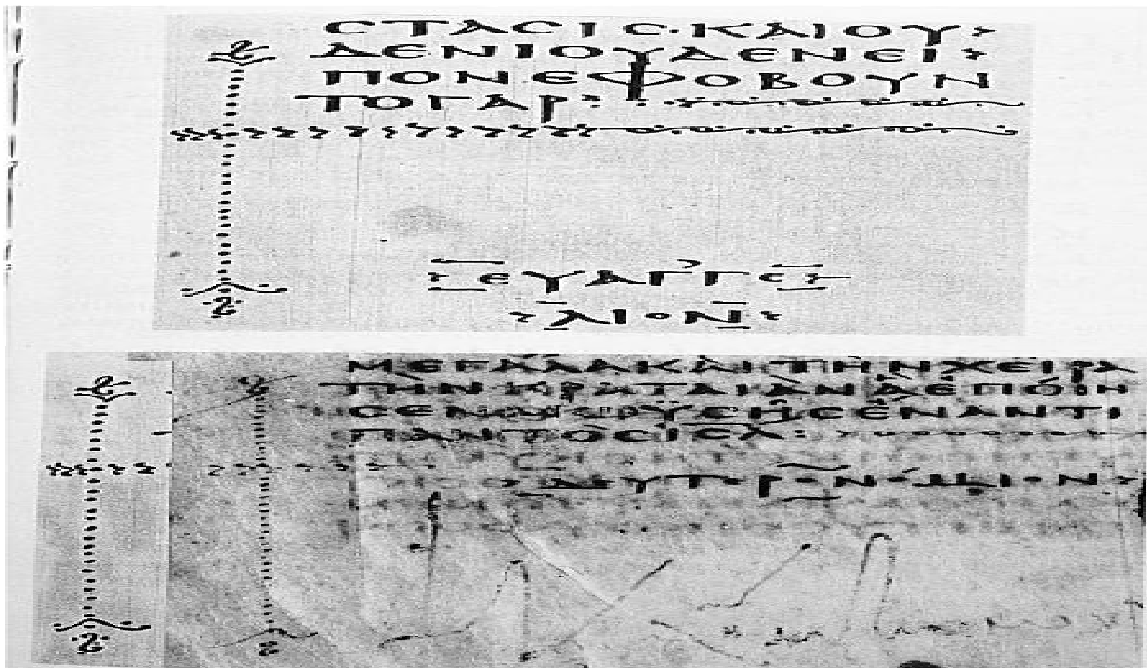 ϹΤΑϹΙϹ·ΚΑΙΟΥ
ΔΕΝΙΟΥΔΕΝΕΙ
ΠΟΝΕΦΟΒΟΥΝ
ΤΟΓΑΡ:
ΕΥΑΓΓΕ
ΛΙΟΝ
ΜΕΓΑΛΑΚΑΙΤΗΝΧΕΙΡΑ
ΤΗΝΚΡΑΤΑΙΑΝΑΕΠΟΙΗ
ϹΕΝΜΩΥϹΗϹΕΝΑΝΤΙ
ΠΑΝΤΟϹΙϹΛ:
ΔΕΥΤΕΡΟΝΟΜΙΟΝ